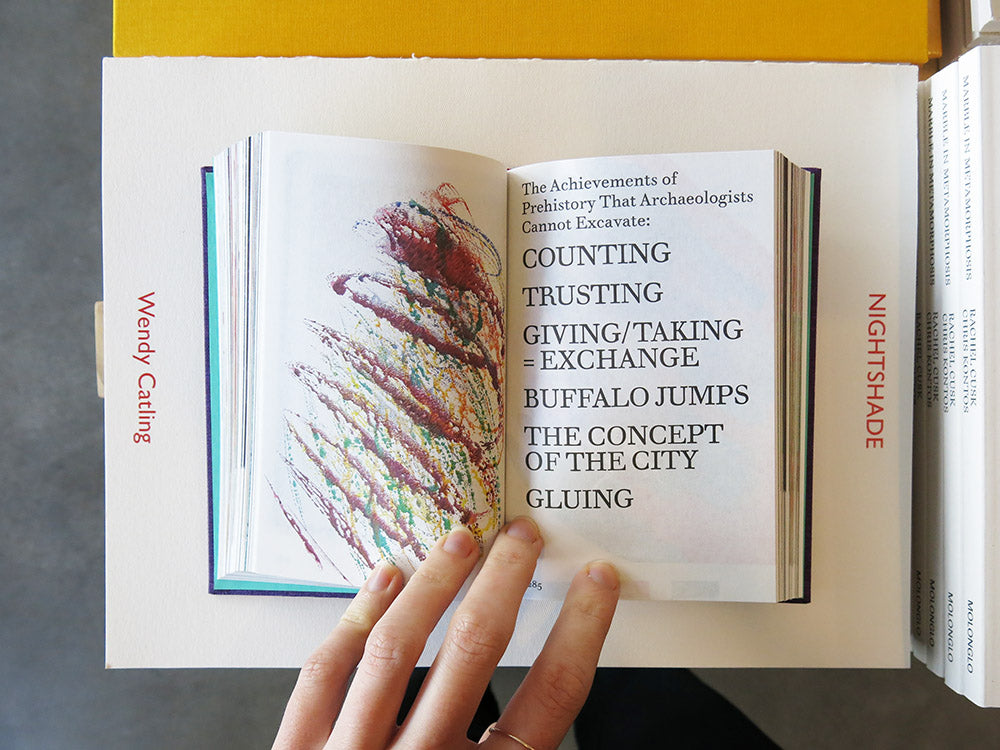 Wendy Catling
The Achievements of
Prehistory That Archaeologists
Cannot Excavate:
COUNTING
TRUSTING
GIVING/TAKING
= EXCHANGE
BUFFALO JUMPS
THE CONCEPT
OF THE CITY
GLUING
NIGHTSHADE
MARBLE IN METAMORPHOSIS
RACHEL CUSK
CHRIS KONTOS
MOLONGLO
MARBLE IN METAMORPHOSIS
RACHEL CUSK
CHRIS KONTOS
MOLONGLO
MARBLE IN METAMORPHOSIS
RACHEL CUSK
CHRIS KONTOS
MOLONGLO
RACHEL CUSK
MOLONGLO